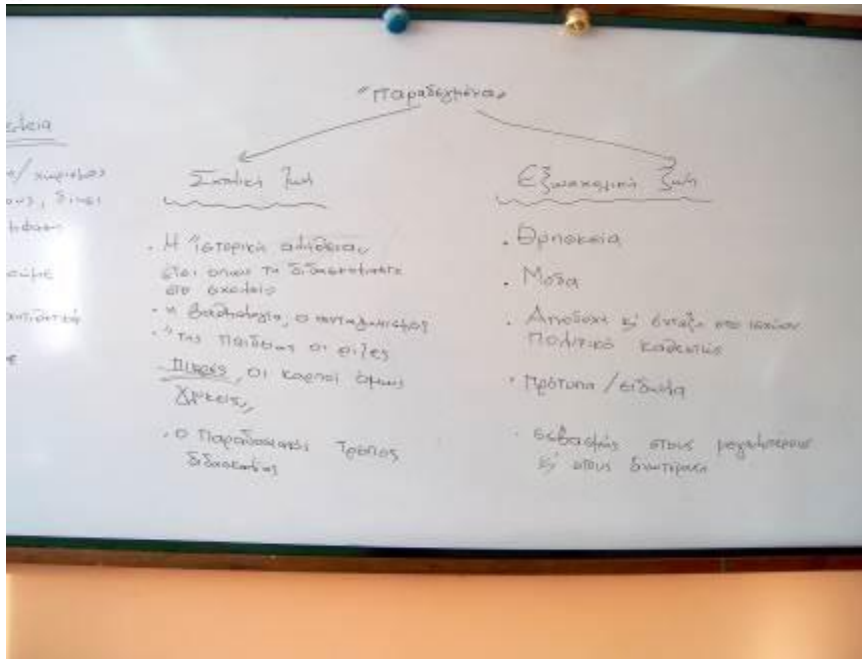 "παραδεγμένα"
Σχολική Ζωή
Εξωσχολική Ζωή
. Η "ιστορική αλήθεια"
έτσι όπως τη διδασκόμαστε
στο σχολείο
. η βαθμολογία, ο ανταγωνισμός
. "της παιδείας οι ρίζες
πικρές, οι καρποί όμως
γλυκείς"
. ο παραδοσιακός τρόπος
διδασκαλίας
. Θρησκεία
. Μόδα
. Αποδοχή κι ένταξη στο ισχύον
πολιτικό καθεστώς
. πρότυπα / είδωλα
. σεβασμός στους μεγαλύτερους
κι στους ανώτερους